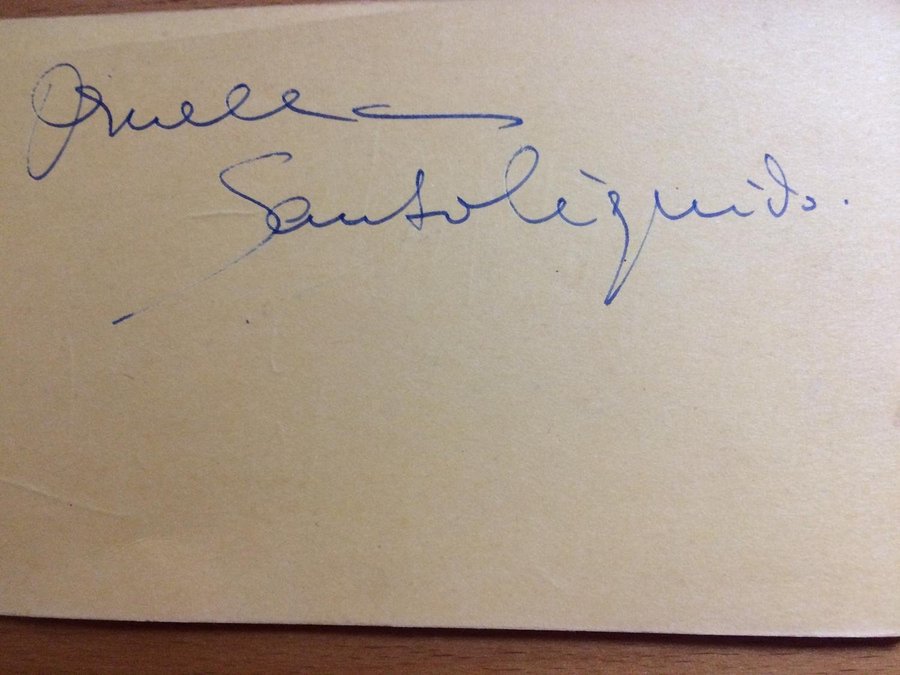 Ornella
Santoliquido.